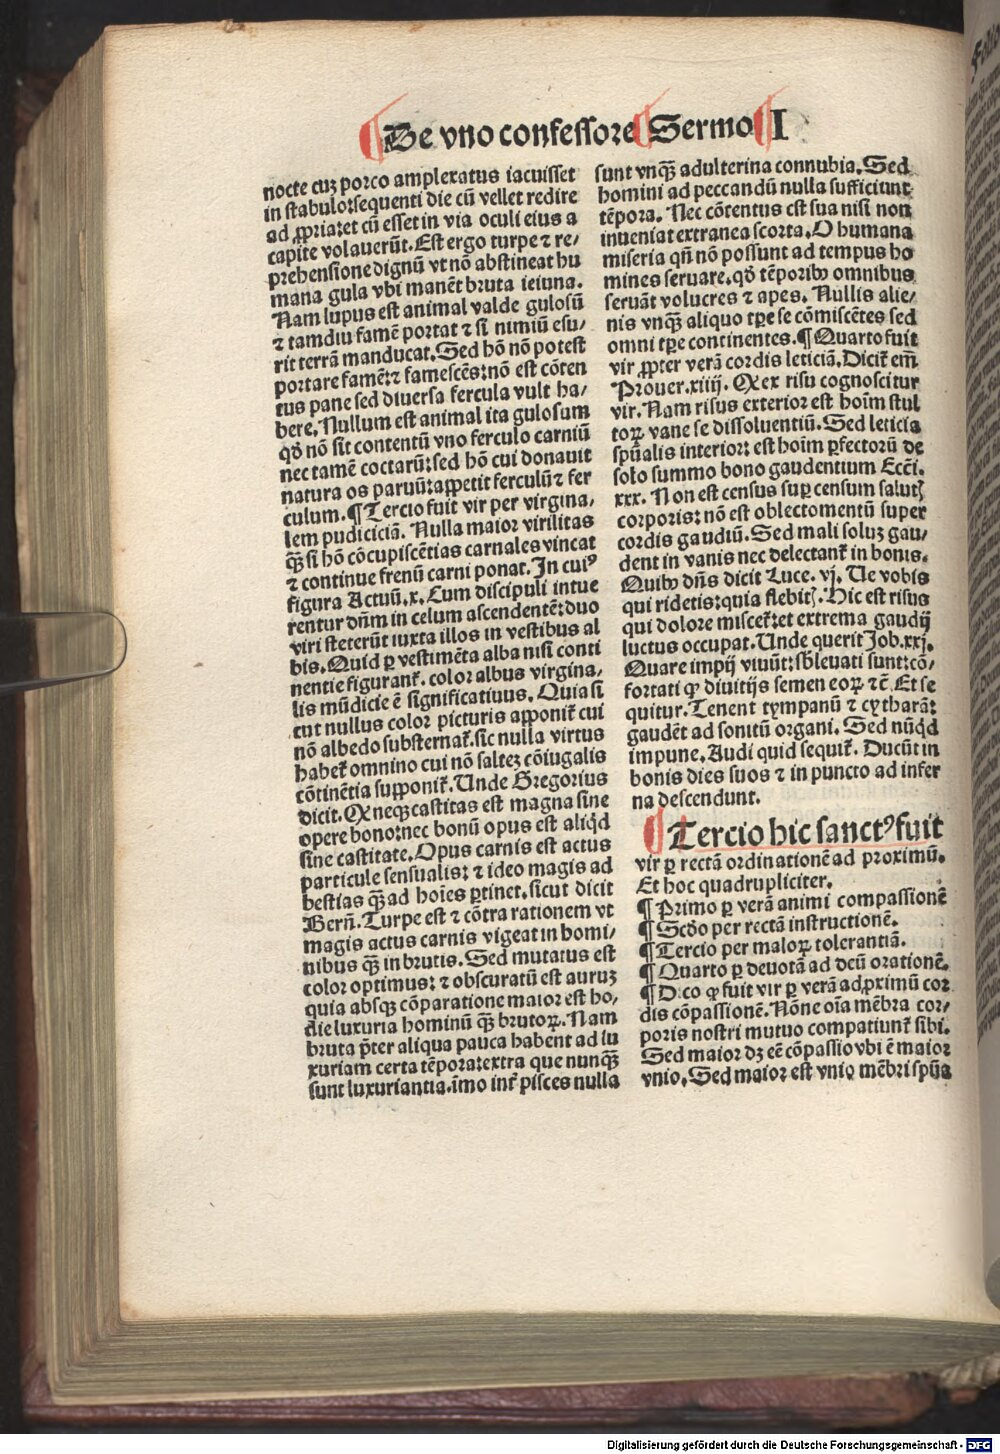 ¶ De vno confessore ¶ Sermo ¶ I
nocte cuꝫ porco amplexatus iacuisset
in stabulo:sequenti die cū vellet redire
ad ꝓpria:et cū esset in via oculi eius a
capite volauerūt. Est ergo turpe ⁊ re/
prehensione dignū vt nō abstineat hu
mana gula vbi manēt bruta ieiuna.
Nam lupus est animal valde gulosū
⁊ tamdiu famē portat ⁊ si nimiū esu/
rit terrā manducat. Sed hō nō potest
portare famē:⁊ famescēs:nō est cōten
tus pane sed diuersa fercula vult ha/
bere. Nullum est animal ita gulosum
qđ nō sit contentū vno ferculo carniū
nec tamē coctarū:sed hō cui donauit
natura os paruū:appetit ferculū ⁊ fer
culum. ¶ Tercio fuit vir per virgina/
lem pudiciciā. Nulla maior virilitas
q̄ꝫ si hō cōcupiscētias carnales vincat
⁊ continue frenū carni ponat. In cuiꝰ
figura Actuū.x. Cum discipuli intue
rentur dn̄m in celum ascendentē:duo
viri steterūt iuxta illos in vestibus al
bis. Quid ꝑ vestimēta alba nisi conti
nentie figurant᷑. color albus virgina/
lis mūdicie ē significatiuus. Quia si
cut nullus color picturis apponit᷑ cui
nō albedo substernat᷑. sic nulla virtus
habet᷑ omnino cui nō salteꝫ cōiugalis
cōtinētia supponit᷑. Unde Gregorius
dicit. Qꝫ neqꝫ castitas est magna sine
opere bono:nec bonū opus est aliqͥd
sine castitate. Opus carnis est actus
particule sensualis: ⁊ ideo magis ad
bestias q̄ꝫ ad hoīes ꝑtinet. sicut dicit
Berñ. Turpe est ⁊ cōtra rationem vt
magis actus carnis vigeat in homi/
nibus q̄ꝫ in brutis. Sed mutatus est
color optimus: ⁊ obscuratū est auruꝫ
quia absqꝫ cōparatione maior est ho/
die luxuria hominū q̄ꝫ brutoꝝ. Nam
bruta p̄ter aliqua pauca habent ad lu
xuriam certa tēpora:extra que nunq̄ꝫ
sunt luxuriantia. īmo int᷑ pisces nulla
sunt vnq̄ꝫ adulterina connubia. Sed
homini ad peccandū nulla sufficiunt
tēpora. Nec cōtentus est sua nisi non
inueniat extranea scorta. O humana
miseria qn̄ nō possunt ad tempus ho
mines seruare. qđ tēporibꝰ omnibus
seruāt volucres ⁊ apes. Nullis alie/
nis vnq̄ꝫ aliquo tꝑe se cōmiscētes sed
omni tꝑe continentes. ¶ Quarto fuit
vir ꝓpter verā cordis leticiā. Dicit᷑ em̄
Prouer.xiiij. Qꝫ ex risu cognoscitur
vir. Nam risus exterior est hoīm stul
toꝝ vane se dissoluentiū. Sed leticia
spūalis interior: est hoīm ꝑfectorū de
solo summo bono gaudentium Ecc̄i.
xxx. Non est census suꝑ censum salutꝭ
corporis: nō est oblectomentū super
cordis gaudiū. Sed mali soluꝫ gau/
dent in vanis nec delectant᷑ in bonis.
Quibꝰ dn̄s dicit Luce. vj. Ue vobis
qui ridetis:quia flebitꝭ. Hic est risus
qui dolore miscet᷑:et extrema gaudij
luctus occupat. Unde querit Job.xxj.
Quare impij viuūt: sb̄leuati sunt:cō/
fortati qꝫ diuitijs semen eoꝝ ⁊c̄. Et se
quitur. Tenent tympanū ⁊ cytharā:
gaudēt ad sonitū organi. Sed nūqͥd
impune. Audi quid sequit᷑. Ducūt in
bonis dies suos ⁊ in puncto ad infer
na descendunt.
¶ Tercio hic sanctꝰ fuit
vir ꝑ rectā ordinationē ad proximū.
Et hoc quadrupliciter.
¶ Primo ꝑ verā animi compassionē
¶ Scđo per rectā instructionē.
¶ Tercio per maloꝝ tolerantiā.
¶ Quarto ꝑ deuotā ad deū orationē.
¶ Dico qꝫ fuit vir ꝑ verā ad ꝓximū cor
dis cōpassionē. Nōne oīa mēbra cor/
poris nostri mutuo compatiunt᷑ sibi.
Sed maior dꝫ eē cōpassio vbi ē maior
vnio. Sed maior est vnio mēbri spūa
Digitalisierung gefördert durch die Deutsche Forschungsgemeinschaft - DFG